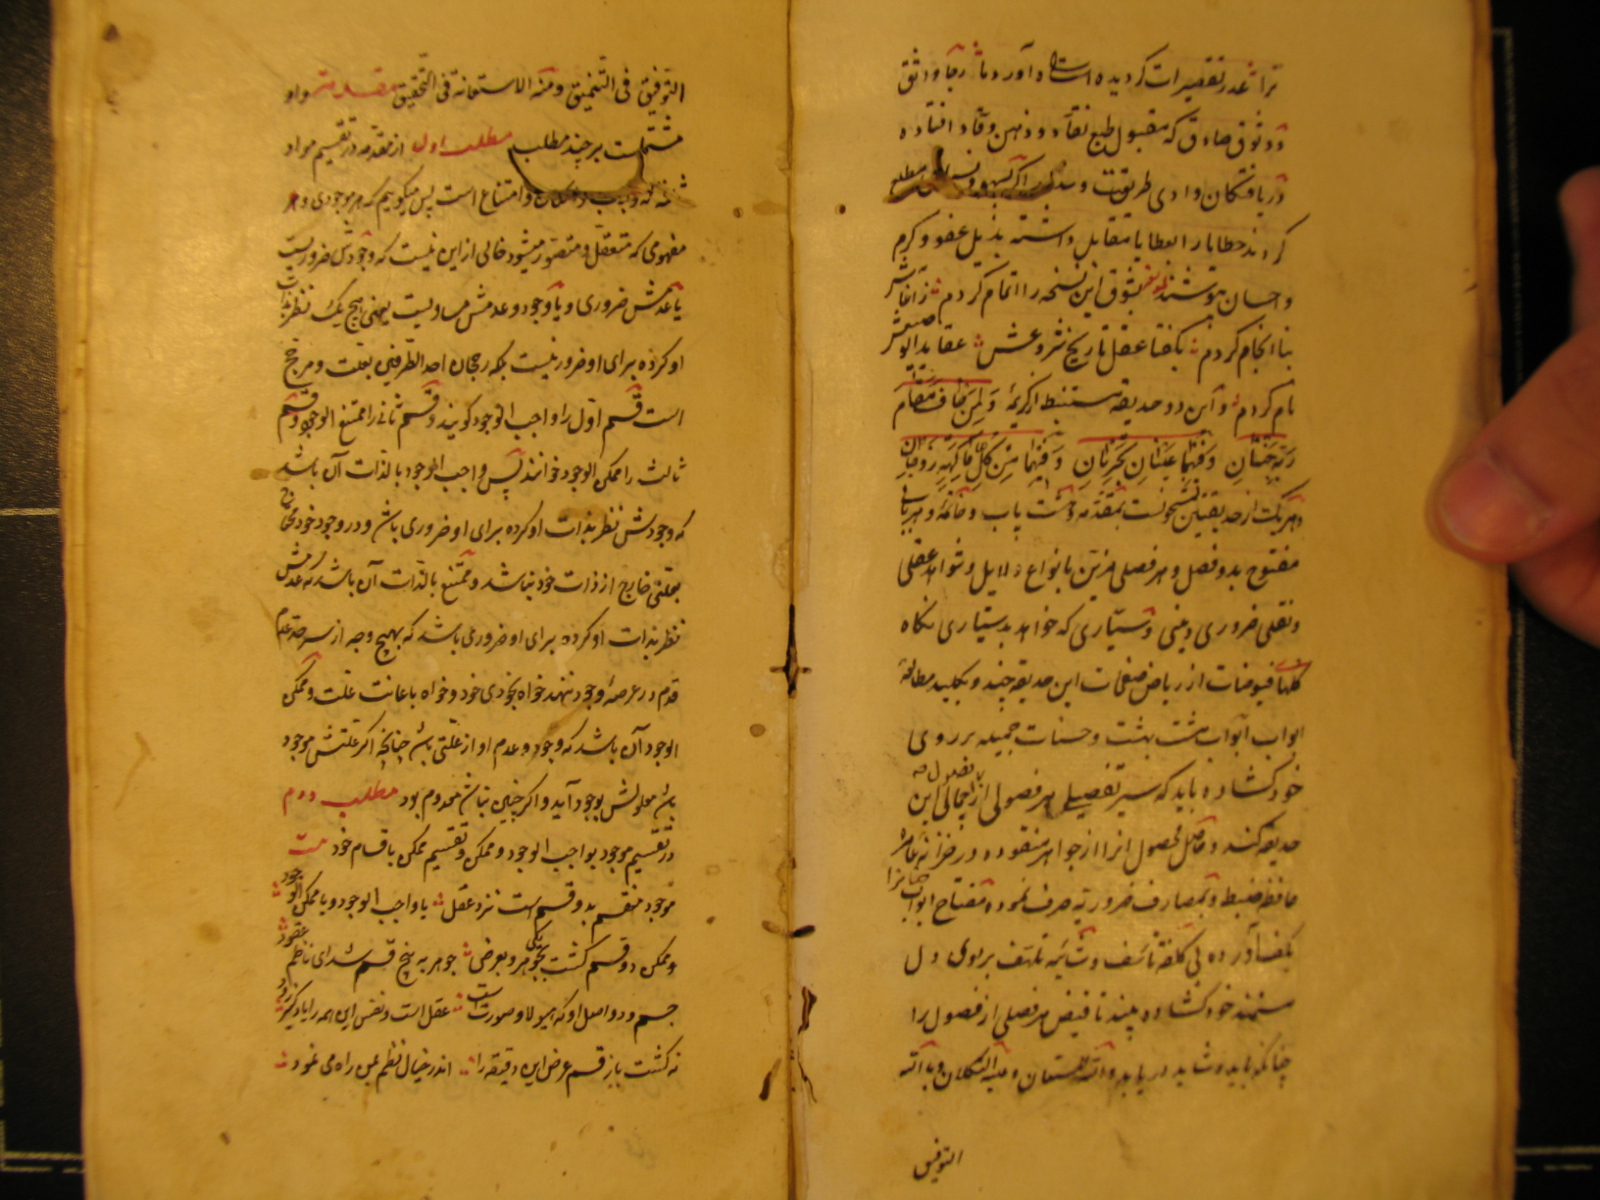 ترا عذر تقصیرات گردیده است آورد ما رجا واثق
و وثوق صادق که مقبول طبع نقاد و ذهن وقاد افتاده
دریافتگان وادی طریقت و اگر بسهو و
گردند خطایا را بعطایا متقابل داشته بذیل عفو و کرم
و احسان بپوشند بشوق این نسخه را اتمام کردم ز آغازش
بنا انجام کردم بگفتا عقل تاریخ نثر و عقاید
نام کردم و این دو حدیقه مستنبط از کریمه وَلِمَن خافَ مَقامَ
رَبِّهِ جَنَّتانِ وَ فیهِما عَینانِ تَجرِیانِ وَ فیهِما مِن کُلِّ فاکِهَةٍ زَوجانِ
و هر یک از حدیقتین مشحونست بمقدمه و هشت باب و خاتمه و هر بابی
مفتوح بدو فصل و هر فصلی مزین بانواع دلایل و شواهد عقلی
و نقلی ضروری دینی و بسیاری که خواهد بدستیاری نگاه
گلهای فیوضات از ریاض صفحات این حدیقه چیند و بکلید مطالعه
ابواب ابواب هشت بهشت و حسنات جمیله بر روی
خود گشاده باید که سیر تفصیلی هر فصولی از اجمالی این
حدیقه کند و حاصل محصول انرا از جواهر منقوده در خزانه عامره
حافظه ضبط و بمصارف ضروریه صرف نموده مفتاح ابواب
بکف آورده بی کلفة تاسف و شائبه تلهف بر روی دل
مستمند خود گشاده بیند تا فیض هر فصلی از فصول را
چنانکه باید و شاید دریابد والله المستعان و علیه التکلان و بالله
التوفیق
التوفیق فی التنمیق و منه الاستعانة فی التحقیق مقدمه
مشتملست بر چند مطلب مطلب اول از مقدمه در تقسیم مواد
ثلثه که وجوب و امکان و امتناع است پس میگوییم که هر موجودی و هر
مفهومی که متعقل و متصور میشود خالی از این نیست که وجودش ضروریست
یا عدمش ضروری و یا وجود و عدمش مساویست یعنی هیچ یک نظر بذات
او کرده برای او ضرور نیست بلکه رجحان احد الطرفین بعلت و مرجح
است قسم اول را واجب الوجود گویند و قسم ثانی را ممتنع الوجود و قسم
ثالث را ممکن الوجود خوانند پس واجب الوجود بالذات آن باشد
که وجودش نظر بذات او کرده برای او ضروری باشد و در وجود خود محتاج
بعلتی خارج از ذات خود نباشد و ممتنع بالذات آن باشد که عدمش
نظر بذات او کرده برای او ضروری باشد که بهیچ وجه از سرحد عدم
قدم در عرصه وجود ننهد خواه بخودی خود و خواه باعانت علت و ممکن
الوجود آن باشد که وجود و عدم او از علتی باشد چنانچه اگر علتش موجود
باشد معلولش بوجود آید و اگر چنین نباشد معدوم بود مطلب دوم
در تقسیم موجود بواجب الوجود و ممکن و تقسیم ممکن باقسام خود
موجود منقسم بدو قسم است نزد عقل یا واجب الوجود و یا ممکن الوجود
و ممکن دو قسم گشت بجوهر و بعرض جوهر به پنج قسم شد ای ناظم عقود
جسم و دو اصل او که هیولا و صورت است عقل است و نفس این همه را یاد گیر زود
نه گشت باز قسم عرض این دقیقه را اندر خیال نظم عین راه می نمود